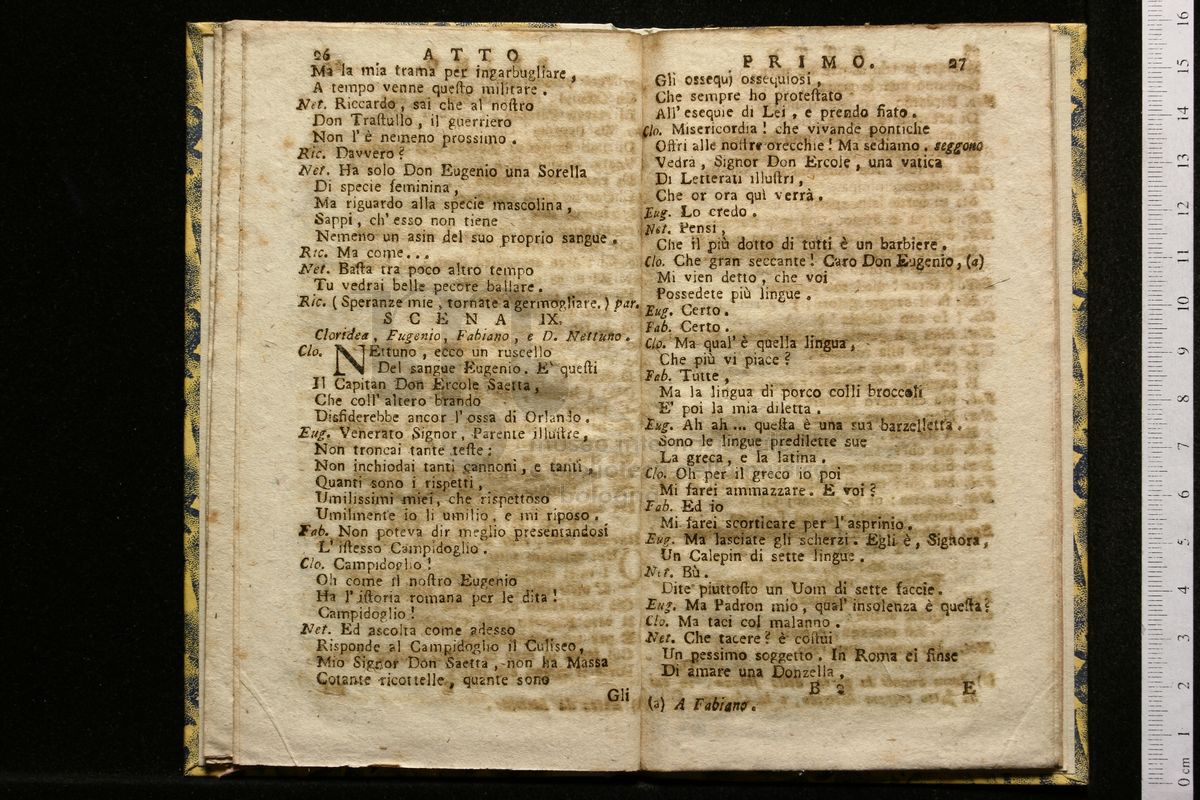 26 ATTO
Ma la mia trama per ingarbugliare,
A tempo venne questo militare.
Net. Riccardo, sai che al nostro
Don Trastullo, il guerriero
Non l'è nemeno prossimo.
Ric. Davvero?
Net. Ha solo Don Eugenio una Sorella
Di specie feminina,
Ma riguardo alla specie mascolina,
Sappi, ch'esso non tiene
Nemeno un asin del suo proprio sangue.
Ric. Ma come...
Net. Basta tra poco altro tempo
Tu vedrai belle pecore ballare.
Ric. (Speranze mie, tornate a germogliare.) par.
SCENA IX.
Cloridea, Eugenio, Fabiano, e D. Nettuno.
Clo. NEttuno, ecco un ruscello
Del sangue Eugenio. E' questi
Il Capitan Don Ercole Saetta,
Che coll'altero brando
Disfiderebbe ancor l'ossa di Orlando.
Eug. Venerato Signor, Parente illustre,
Non troncai tante teste;
Non inchiodai tanti cannoni, e tanti,
Quanti sono i rispetti,
Umilissimi miei, che rispettoso
Umilmente io li umilio, e mi riposo.
Fab. Non poteva dir meglio presentandosi
L'istesso Campidoglio.
Clo. Campidoglio!
Oh come il nostro Eugenio
Ha l'istoria romana per le dita!
Campidoglio!
Net. Ed ascolta come adesso
Risponde al Campidoglio il Culiseo,
Mio Signor Don Saetta, non ha Massa
Cotante ricottelle, quante sono
Gli
PRIMO. 27
Gli ossequj ossequiosi,
Che sempre ho protestato
All'esequie di Lei, e prendo fiato.
Clo. Misericordia! che vivande pontiche
Ostri alle nostre orecchie! Ma sediamo. seggono
Vedra, Signor Don Ercole, una vatica
Di Letterati illustri,
Che or ora quì verrà.
Eug. Lo credo.
Net. Pensi,
Che il più dotto di tutti è un barbiere.
Clo. Che gran seccante! Caro Don Eugenio, (a)
Mi vien detto, che voi
Possedete più lingue.
Eug. Certo.
Fab. Certo.
Clo. Ma qual'è quella lingua,
Che più vi piace?
Fab. Tutte,
Ma la lingua di porco colli broccoli
E' poi la mia diletta.
Eug. Ah ah... questa è una sua barzelletta.
Sono le lingue predilette sue
La greca, e la latina.
Clo. Oh per il greco io poi
Mi farei ammazzare. E voi?
Fab. Ed io
Mi farei scorticare per l'asprinio.
Eug. Ma lasciate gli scherzi: Egli è, Signora,
Un Calepin di sette lingue.
Net. Bù.
Dite piuttosto un Uom di sette faccie.
Eug. Ma Padron mio, qual'insolenza è questa?
Clo. Ma taci col malanno.
Net. Che tacere? è costui
Un pessimo soggetto. In Roma ei finse
Di amare una Donzella,
B 2 E
(a) A Fabiano.